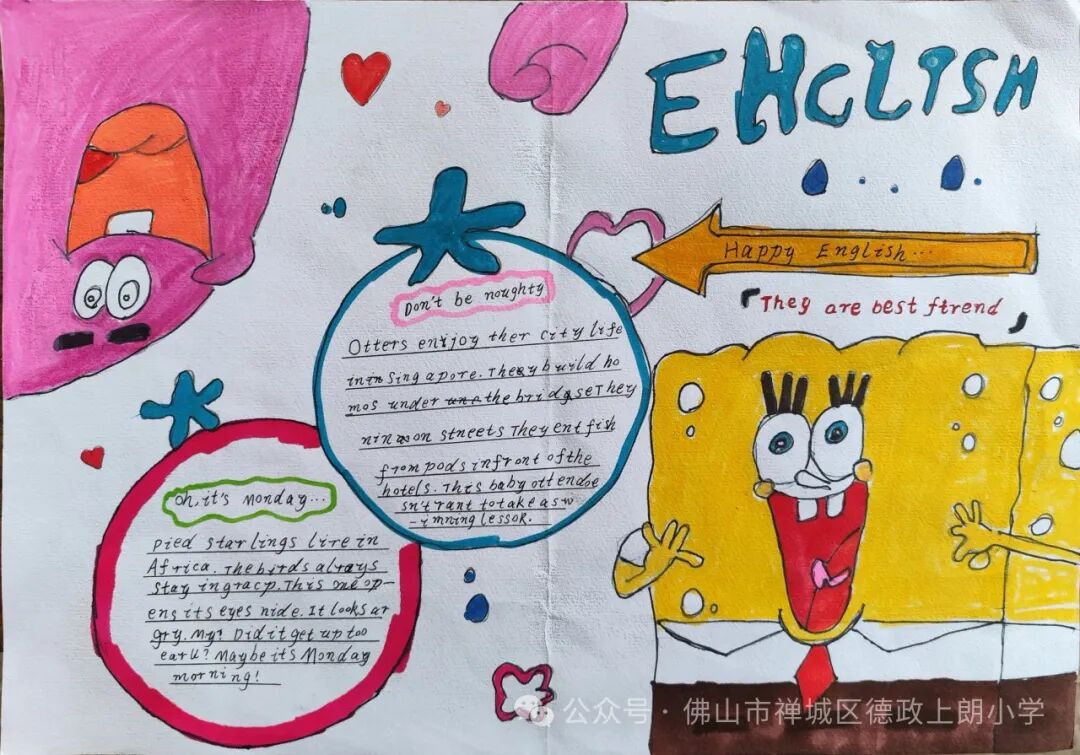 ENGLISH
Happy English...
「They are best ftrend」
Don't be noughty
Otters enijoy ther city life
inin Singapore. They bwild ho
mos under the bridgse They
on stneets They ent fish
from pods infront ofthe
hotels. This baby ott endoe
sn't rant to take a sw
-imning lessor.
Oh, it's Monday...
Pied starlings lire in
Africa. The birds always
stay ingracp. This one op-
ens its eyes nide. It looks ar
gry. My? Did it get up too
earu? Maybe it's Monday
morning!
公众号·佛山市禅城区德政上朗小学